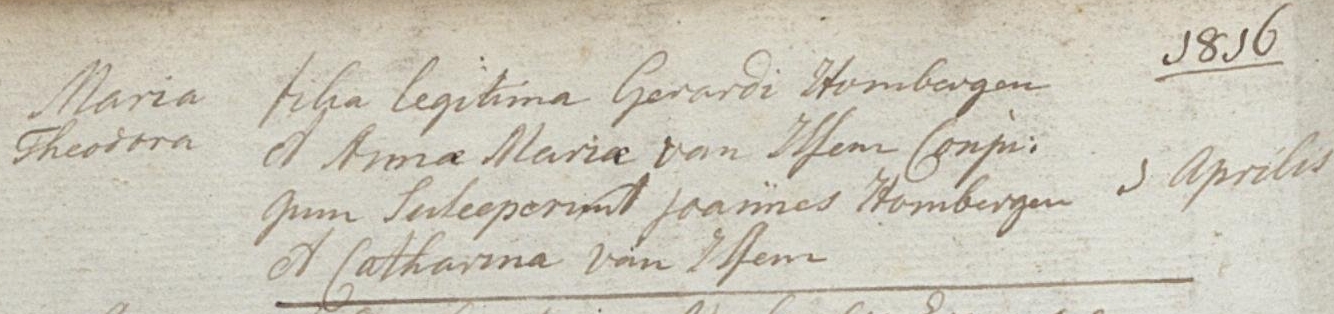 1816
Maria filia legitima Gerardi Hombergen
Theodora et Annæ Mariæ van Issem Conju:
gum Susceperunt joannes Hombergen 1 Aprilis
et Catharina van Issem